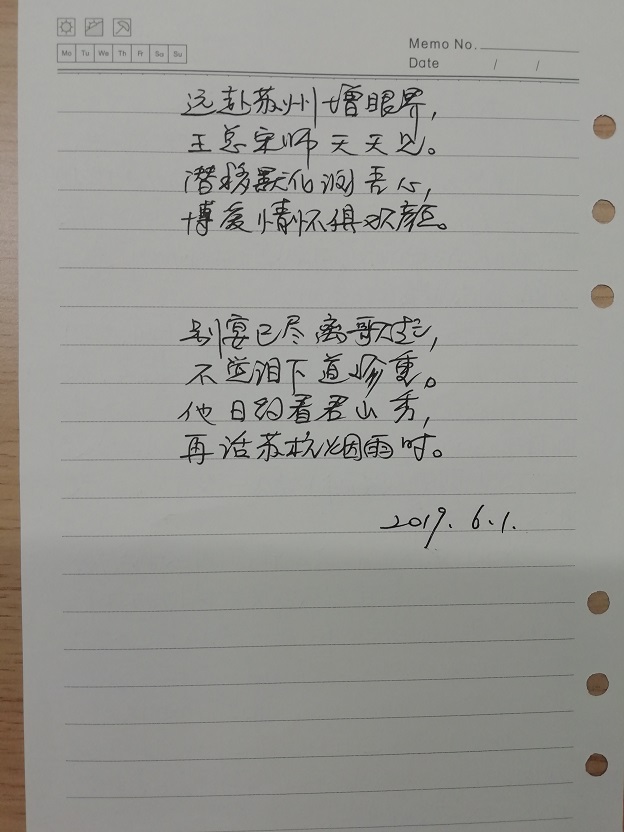 Mo Tu We Th Fr Sa Su
Memo No.
Date / /
远赴苏州增眼界,
王总宋师天天见。
潜移默化润吾心,
博爱情怀俱欢颜。
别宴已尽离歌起,
不觉泪下道珍重。
他日约看君山秀,
再话苏杭烟雨时。
2019.6.1.